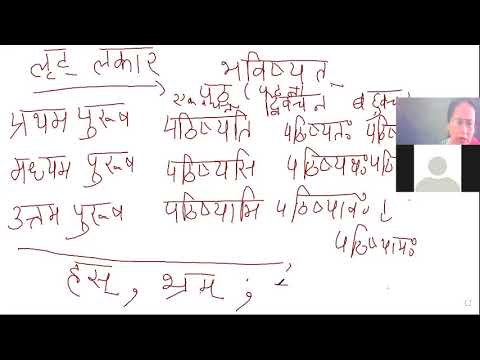 लृट् लकार भविष्यत्
पठ् (पढ़ना)
एकवचन द्विवचन
प्रथम पुरूष पठिष्यति पठिष्यतः
मध्यम पुरूष पठिष्यसि पठिष्यथः
उत्तम पुरूष पठिष्यामि पठिष्यावः ↓
पठिष्यामः
हस्, भ्रम्,